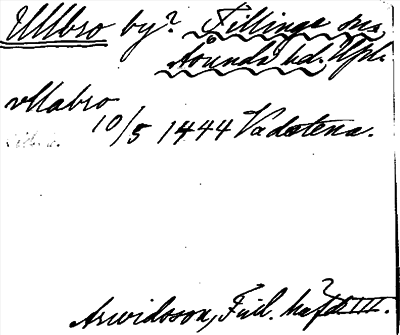 Ullbro by? Tillinge sn
Åsunda hd. Upl.
vllabro
10/5 1444 Vadstena.
Arwidsson, Füll. häft III.